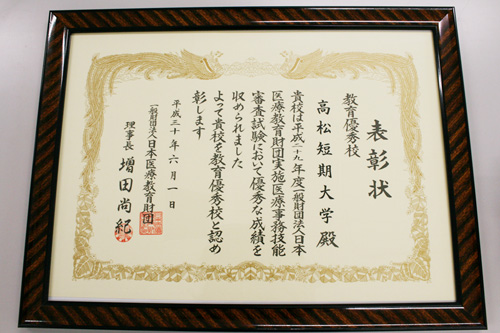 表彰状
教育優秀校
高松短期大学殿
貴校は平成二十九年度一般財団法人日本
医療教育財団実施医療事務技能
審査試験において優秀な成績を
収められました
よって貴校を教育優秀校と認め
彰します
平成三十年六月一日
一般財団法人日本医療教育財団
理事長 増田尚紀